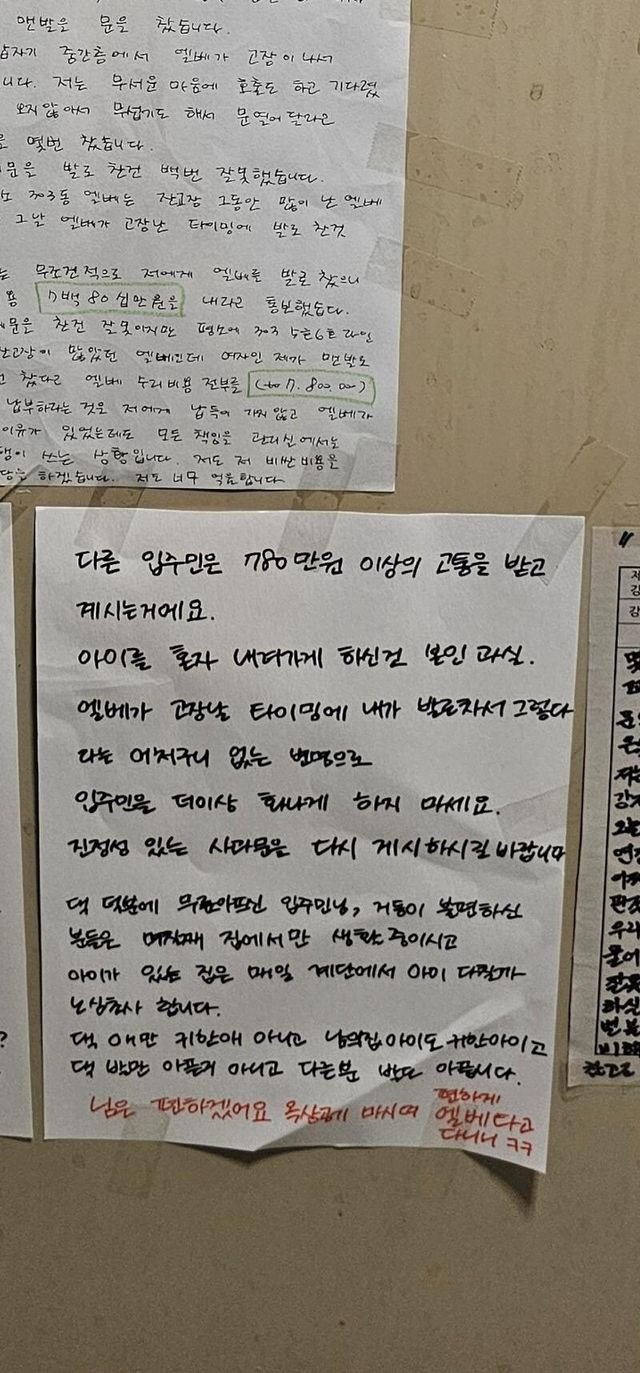 맨발을 문을 찼습니다.
갑자기 중간층에서 엘베가 고장이 나서
니다. 저는 무서운 마음에 호출도 하고 기다렸
오지않아서 무섭기도 해서 문열어달라고
몇번 찼습니다.
문을 발로 찬건 백번 잘못했습니다.
303동 엘베는 잔고장 그동안 많이 난 엘베
그날 엘베가 고장난 타이밍에 발로 찬것
는 무조건적으로 저에게 엘베를 발로 찼으니
용 7백80십만원을 내라고 통보했습니다.
문은 찬건 잘못이지만 평소에 303 5호6호라인
잔고장이 많았던 엘베인데 여자인 제가 맨발로
찼다고 엘베 수리비용 전부를 (₩7.800.000)
납부하라는 것은 저에게 납득이 가지 않고 엘베가
이유가 있었는데도 모든 책임을 관리실에서는
쓰는 상황입니다. 저도 저 비싼비용을
하겠습니다. 저도 너무 억울합니다
다른 입주민은 780만원 이상의 고통을 받고
계시는거에요.
아이를 혼자 내려가게 하신건 본인 과실.
엘베가 고장날 타이밍에 내가 발로차서 그렇다
라는 어처구니 없는 변명으로
입주민을 더이상 화나게 하지 마세요.
진정성 있는 사과문은 다시 게시하시길 바랍니다
댁 덕분에 무릎아프신 입주민님, 거동이 불편하신
분들은 며칠째 집에서만 생활중이시고
아이가 있는 집은 매일 계단에서 아이 다칠까
노심초사 합니다.
댁 애만 귀한애 아니고 남의집 아이도 귀한아이고
댁 발만 아픈거 아니고 다른분 발도 아픕니다.
님은 편하겠어요 옥상에 마시며 편하게
엘베타고
다니니 ㅋㅋ